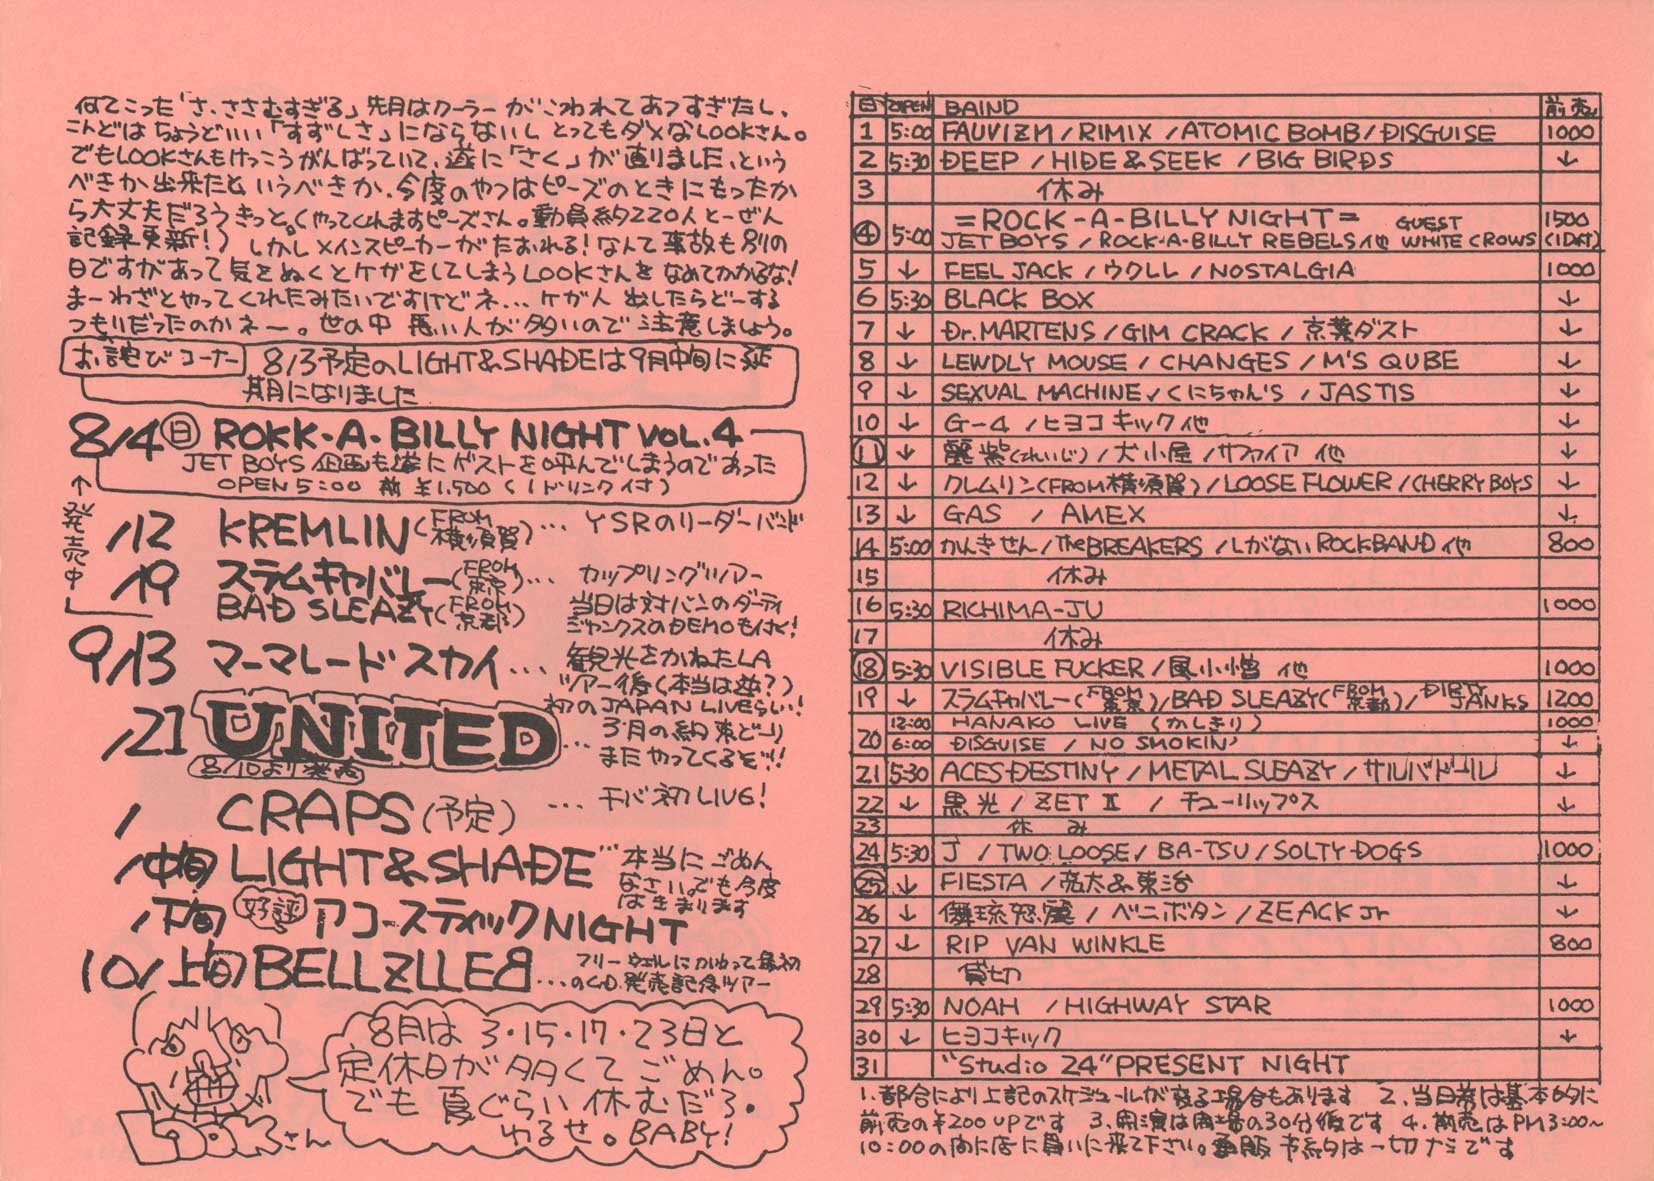 何てこった「さ、ささむすぎる」先月はクーラーがこわれてあつすぎたし、
こんどはちょうどいい「すずしさ」にならないしとってもダメなLOOKさん。
でもLOOKさんもけっこうがんばっていて、遂に「さく」が直りました、という
べきか出来たというべきか、今度のやつはピーズのときにもったか
ら大丈夫だろうきっと。(やってくれますピーズさん。動員約220人とーぜん
記録更新!) しかしメインスピーカーがたおれる!なんて事故も別の
日ですがあって気をぬくとケガをしてしまうLOOKさんをなめてかかるな!
まーわざとやってくれたみたいですけどネ... ケガ人出したらどーする
つもりだったのかネー。世の中悪い人が多いので注意しましょう。
お詫びコーナー 8/3予定のLIGHT&SHADEは9月中旬に延
期になりました
8/4㊐ ROKK-A-BILLY NIGHT VOL.4
JET BOYS企画も遂にゲストを呼んでしまうのであった
OPEN 5:00 前 ¥1,500 (1ドリンク付)
↑発売中
/12 KREMLIN(FROM横須賀)... YSRのリーダーバンド
/19 スラムキャバレー(FROM東京)... カップリングツアー
BAD SLEAZY(FROM京都) 当日は対バンのダーティ
ジャンクスのDEMOも付く!
9/13 マーマレードスカイ... 観光をかねたLA
ツアー後(本当は逆?)
初のJAPAN LIVEらしい!
/21 UNITED ... 3月の約束どーり
またやってくるぞ!!
8/10より発売
/ CRAPS(予定) ... チバ初LIVE!
/中旬 LIGHT&SHADE ... 本当にごめん
なさい。でも今度
はきまります
/下旬 好評 アコースティックNIGHT
10/上旬 BELLZLLEB ... フリーウェルにかわって最初
のCD発売記念ツアー
8月は3・15・17・23日と
定休日が多くてごめん。
でも夏ぐらい休むだろ。
わるせ。BABY!
LOOKさん
日 OPEN BAIND 前売
1 5:00 FAUVIZM / RIMIX / ATOMIC BOMB / DISGUISE 1000
2 5:30 DEEP / HIDE & SEEK / BIG BIRDS ↓
3 休み
④ 5:00 =ROCK-A-BILLY NIGHT= GUEST 1500
JET BOYS / ROCK-A-BILLY REBELS 他 WHITE CROWS (1D付)
5 ↓ FEEL JACK / ウクレレ / NOSTALGIA 1000
6 5:30 BLACK BOX ↓
7 ↓ Dr. MARTENS / GIM CRACK / 京葉ダスト ↓
8 ↓ LEWDLY MOUSE / CHANGES / M'S QUBE ↓
9 ↓ SEXUAL MACHINE / くにちゃん's / JASTIS ↓
10 ↓ G-4 / ヒヨコキック 他 ↓
⑪ ↓ 麗紫(れいじ) / 犬小屋 / サファイア 他 ↓
12 ↓ クレムリン(FROM横須賀) / LOOSE FLOWER / CHERRY BOYS ↓
13 ↓ GAS / AMEX ↓
14 5:00 かんきせん / The BREAKERS / しがないROCKBAND 他 800
15 休み
16 5:30 RICHIMA-JU 1000
17 休み
⑱ 5:30 VISIBLE FUCKER / 風小憎 他 1000
19 ↓ スラムキャバレー(FROM東京) / BAD SLEAZY(FROM京都) / DIRTY JANKS 1200
20 12:00 HANAKO LIVE (かしきり) 1000
6:00 DISGUISE / NO SMOKIN' ↓
21 5:30 ACES DESTINY / METAL SLEAZY / サルバドール ↓
22 ↓ 黒光 / ZET II / チューリップス ↓
23 休み
24 5:30 J / TWO LOOSE / BA-TSU / SOLTY DOGS 1000
㉕ ↓ FIESTA / 亮太&東治 ↓
26 ↓ 舞琉怒麗 / ベニボタン / ZEACK Jr ↓
27 ↓ RIP VAN WINKLE 800
28 貸切
29 5:30 NOAH / HIGHWAY STAR 1000
30 ↓ ヒヨコキック ↓
31 "Studio 24" PRESENT NIGHT
1. 都合により上記のスケジュールが変る場合もあります 2. 当日券は基本的に
前売の¥200UPです 3. 開演は開場の30分後です 4. 前売はPM3:00〜
10:00の間に店に買いに来て下さい。通販予約は一切ナシです